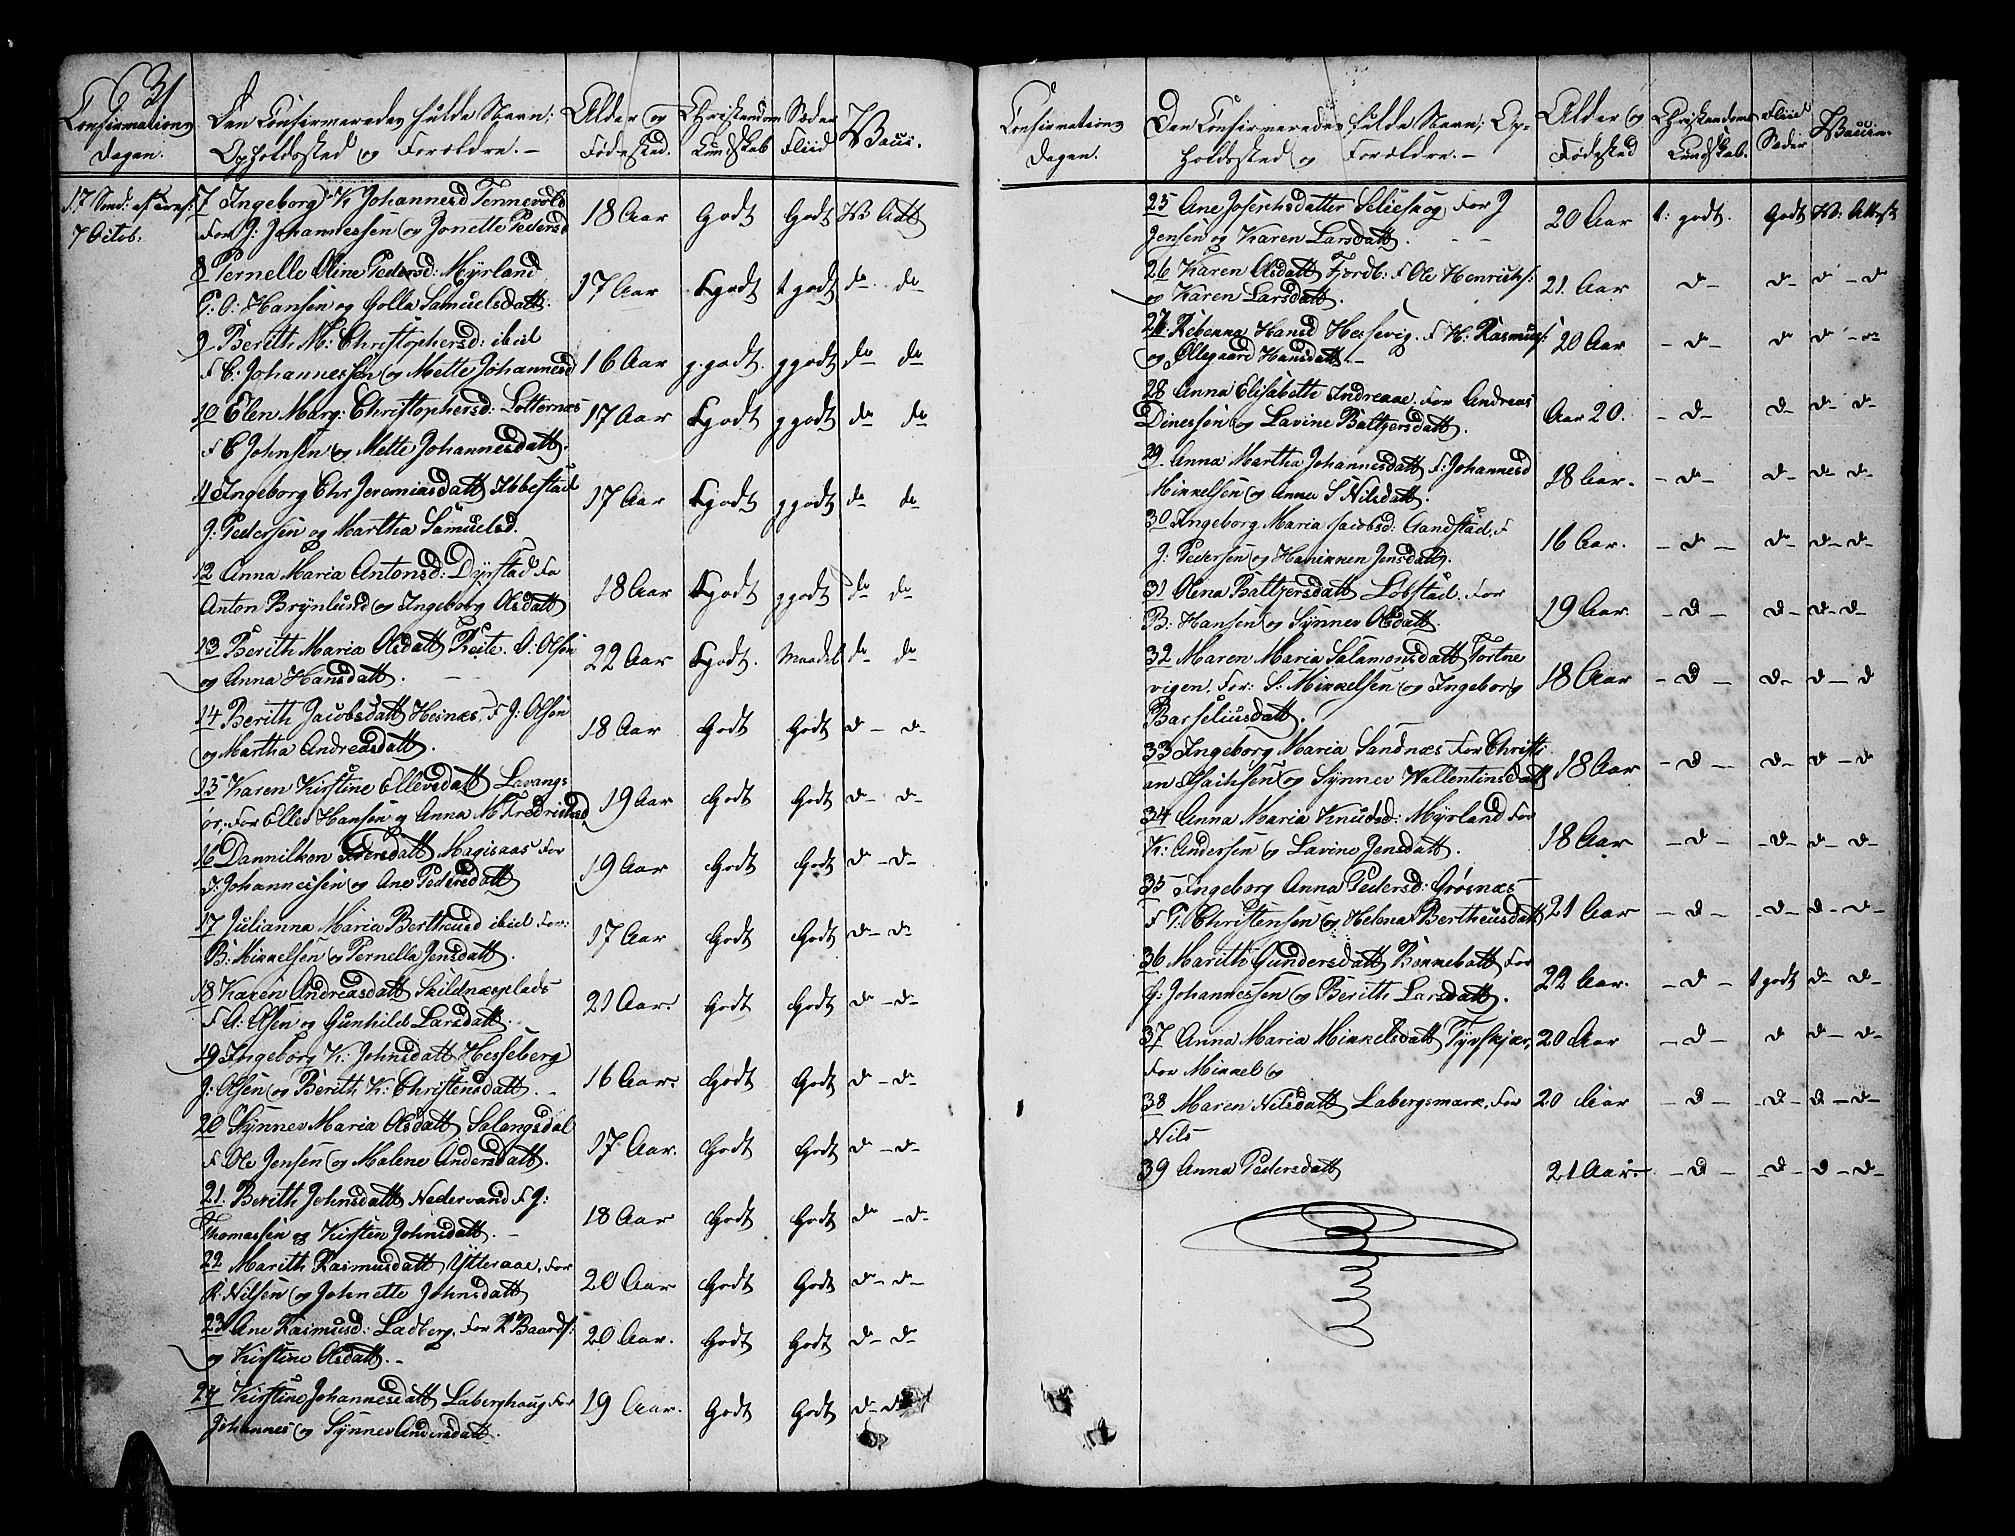 Confirmations
Dagen.
Den Confirmeredes fulde Navn:
Opholdssted og Forældre. -
Alder og
Fødested.
Christendoms
Kundskab
Sæder
Fliid
Vacci.
17 Sønd: af Tref:
7 Octob:
7 Ingeborg K Johannesd Tennevold
For J: Johannessen og Jonette Pedersd
18 Aar Godt Godt W Att
8 Pernelle Oline Pedersd: Myrland
P: O: Hansen og Golla Samuelsdatt.
17 Aar t godt t godt do do
9 Berith M: Christophersd: ibid
F C: Johannessen og Mette Johannesd
16 Aar g. godt. g godt do do
10 Elen Marg: Christophersd: Lotternæs
F C Johnsen og Mette Johannesdatt.
17 Aar t godt g godt do do
11 Ingeborg Chr Jeremiasdatt Ibbestad
J: Pedersen og Martha Samuelsd.
17 Aar t godt g godt do do
12 Anna Maria Antonsd: Dyrstad Fo
Anton Brynlund og Ingeborg Olsdatt
18 Aar t godt g godt do do
13 Berith Maria Olsdatt Reite. O: Olsen
og Anna Hansdatt.
22 Aar t godt. Maadel. do do
14 Berith Jacobsdatt Hesnæs, F J: Olsen
og Martha Andreasdatt.
18 Aar Godt Godt d - d -
15 Karen Kirstine Ellevsdatt Lavangs
ør, For Ellev Hansen og Anna M Fredriksd
19 Aar Godt Godt d - d -
16 Dannilken Pedersdatt Hagisaas For
P: Johannessen og Ane Pedersdatt
19 Aar Godt Godt d - d -
17 Julianna Maria Bertheusd ibid For:
B: Mikkelsen og Pernella Jensdatt.
17 Aar Godt Godt d - d -
18 Karen Andreasdatt Skildnæsplads
F A: Olsen og Gunhild Larsdatt.
21 Aar. Godt Godt d - d -
19 Ingeborg K: Johnsdatt Hesseberg
J: Olsen og Berith K: Christensdatt. -
16 Aar: Godt Godt d - d -
20 Synnev Maria Olsdatt Salangsdal
F Ole Jensen og Malene Andersdatt.
17 Aar. Godt Godt d - d -
21. Berith Johnsdatt Nedervand F J:
Thomassen og Kirsten Johnsdatt. -
18 Aar Godt Godt d - d -
22 Marith Rasmusdatt Ytteraae, For
R: Nilsen og Johnette Johnsdatt
20 Aar Godt Godt d - d -
23 Ane Rasmusd: Ladberg, For R Baards:
og Kirstine Olsdatt. -
20 Aar. Godt Godt d - d -
24 Kirstine Johannesdatt Laberghaug For
Johannes og Synnev Andersdatt.
19 Aar. Godt Godt d - d
Confirmations
Dagen.
Den Confirmeredes fulde Navn; Op-
holdssted og Forældre. -
Alder og
Fødested
Christendoms
Kundskab.
Fliid
Sæder
Vaccin.
25 Ane Josephsdatter Selieskog, For J
Jensen og Karen Larsdatt. - -
20 Aar t: godt. Godt W: Attest
26 Karen Olsdatt Fjordb: F Ole Henriks:
og Karen Larsdatt.
21. Aar - d - d - d - d
27 Rebenna Hansd Hessevig. F H: Rasmuss:
og Ollegaard Hansdatt. -
20 Aar - d - d d - d -
28 Anna Elisabeth Indreaae. For Andreas
Dinessen og Lavine Baltzersdatt.
Aar 20. - d - d - d - d -
29. Anna Martha Johannesdatt F: Johannesd
Mikkelsen og Anna S Nilsdatt.
18 Aar. - d - d - d - d -
30 Ingeborg Maria Jacobsd: Gandstad, F
J: Pedersen og Hanikken Jensdatt.
16 Aar. - d - d - d - d -
31 Olena Baltzersdatt Løbstad. For
B: Hansen og Synnev Olsdatt.
19 Aar. - d - d - d - d -
32 Maren Maria Salamonsdatt Tortne
vigen, For: S: Mikkelsen og Ingeborg
Barseliusdatt.
18 Aar - d - d - d - d
33 Ingeborg Maria Sandnæs For Christi
an Isachsen og Synnev Wallentinsdatt
18 Aar - d - d - d - d
34 Anna Maria Knudsd: Myrland For
K: Andersen og Lavine Jensdatt.
18 Aar - d - - d - d - d -
35 Ingeborg Anna Pedersd: Grøsnæs
F P: Christensen og Helena Bertheusdatt
21 Aar - d - - d - d - d -
36 Marith Gundersdatt Bonnebatt For
G: Johannessen og Berith Larsdatt.
22 Aar. - d - t godt d - d -
37 Anna Maria Mikkelsdatt Tyvskjær,
For Mikkel og
20 Aar - d - d d - d -
38 Maren Nilsdatt Labergsmark, For
Nils
20 Aar - d - - d - d - d -
39 Anna Pedersdatt
21 Aar - - d - - d - d - d -